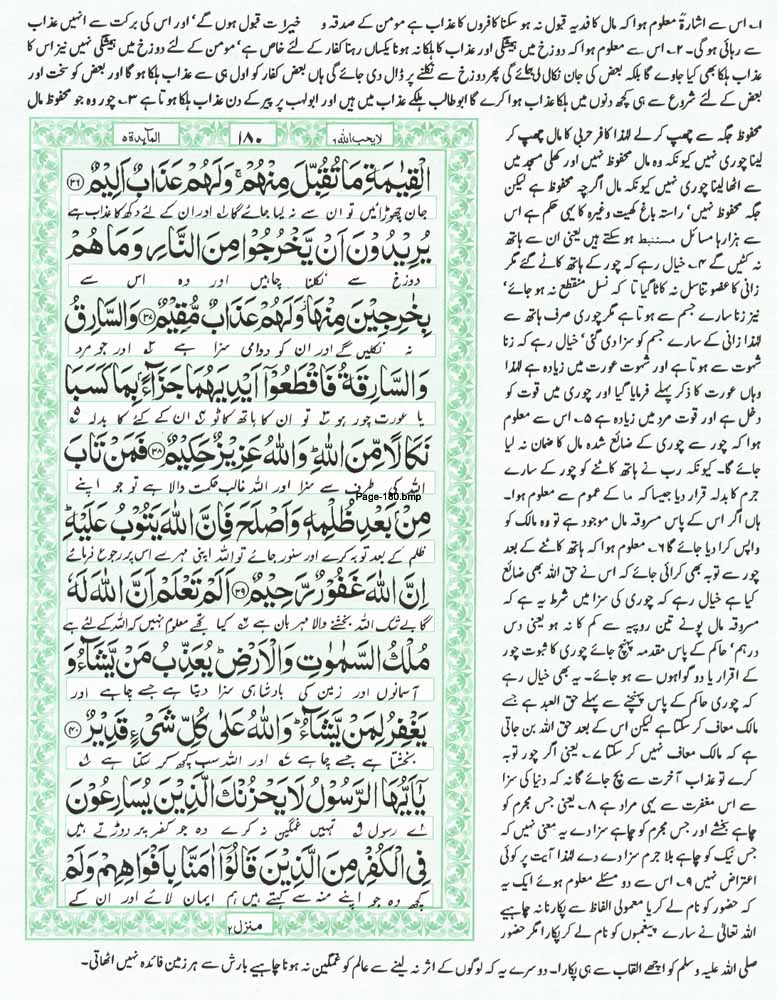 ۱۔ اس سے اشارۃً معلوم ہوا کہ مال کا فدیہ قبول نہ ہو سکنا کافروں کا عذاب ہے مومن کے صدقہ و خیرات قبول ہوں گے' اور اس کی برکت سے انہیں عذاب
سے رہائی ہو گی۔ ۲۔ اس سے معلوم ہوا کہ دوزخ میں ہمیشگی اور عذاب کا ہلکا نہ ہونا یکساں رہنا کفار کے لئے خاص ہے' مومن کے لئے دوزخ میں ہمیشگی نہیں نیز اس کا
عذاب ہلکا بھی کیا جاوے گا بلکہ بعض کی جان نکال لی جائے گی پھر دوزخ سے نکلنے پر ڈال دی جائے گی ہاں بعض کفار کو اول ہی سے عذاب ہلکا ہو گا اور بعض کو سخت اور
بعض کے لئے شروع سے ہی کچھ دنوں میں ہلکا عذاب ہوا کرے گا ابو طالب ہلکے عذاب میں ہیں اور ابولہب پر پیر کے دن عذاب ہلکا ہوتا ہے ۳۔ چور وہ جو محفوظ مال
لا یحب اللہ ۶ ۱۸۰ المآیدۃ ۵
الْقِيٰمَةِ مَا تُقُبِّلَ مِنْهُمْ ۚ وَلَهُمْ عَذَابٌ اَلِيْمٌ ﴿۳۶﴾
جان چھوڑائیں تو ان سے نہ لیا جائے گا اور ان کے لئے دکھ کا عذاب ہے
يُرِيْدُوْنَ اَنْ يَّخْرُجُوْا مِنَ النَّارِ وَمَا هُمْ
دوزخ سے نکلنا چاہیں اور وہ اس سے
بِخٰرِجِيْنَ مِنْهَا ۫ وَلَهُمْ عَذَابٌ مُّقِيْمٌ ﴿۳۷﴾ وَالسَّارِقُ
نہ نکلیں گے اور ان کو دوامی سزا ہے اور جو مرد
وَالسَّارِقَةُ فَاقْطَعُوْٓا اَيْدِيَهُمَا جَزَآءًۢ بِمَا كَسَبَا
یا عورت چور ہو تو ان کا ہاتھ کاٹو ان کے کئے کا بدلہ
نَكَالًا مِّنَ اللّٰهِ ۗ وَاللّٰهُ عَزِيْزٌ حَكِيْمٌ ﴿۳۸﴾ فَمَنْ تَابَ
اللہ کی طرف سے سزا اور اللہ غالب حکمت والا ہے تو جو اپنے
Page-180.bmp
مِنْۢ بَعْدِ ظُلْمِهٖ وَاَصْلَحَ فَاِنَّ اللّٰهَ يَتُوْبُ عَلَيْهِ ۗ
ظلم کے بعد توبہ کرے اور سنور جائے تو اللہ اپنی مہر سے اس پر رجوع فرمائے
اِنَّ اللّٰهَ غَفُوْرٌ رَّحِيْمٌ ﴿۳۹﴾ اَلَمْ تَعْلَمْ اَنَّ اللّٰهَ لَهٗ
گا بے شک اللہ بخشنے والا مہربان ہے کیا تجھے معلوم نہیں کہ اللہ کے لئے ہے
مُلْكُ السَّمٰوٰتِ وَالْاَرْضِ ۗ يُعَذِّبُ مَنْ يَّشَآءُ وَ
آسمانوں اور زمین کی بادشاہی سزا دیتا ہے جسے چاہے اور
يَغْفِرُ لِمَنْ يَّشَآءُ ۗ وَاللّٰهُ عَلٰى كُلِّ شَيْءٍ قَدِيْرٌ ﴿۴۰﴾
بخشتا ہے جسے چاہے اور اللہ سب کچھ کر سکتا ہے
يٰٓاَيُّهَا الرَّسُوْلُ لَا يَحْزُنْكَ الَّذِيْنَ يُسَارِعُوْنَ
اے رسول تمہیں غمگین نہ کرے وہ جو کفر پر دوڑتے ہیں
فِي الْكُفْرِ مِنَ الَّذِيْنَ قَالُوْٓا اٰمَنَّا بِاَفْوَاهِهِمْ وَلَمْ
کچھ وہ جو اپنے منہ سے کہتے ہیں ہم ایمان لائے اور ان کے
منزل ۲
محفوظ جگہ سے چھپ کر لے لہٰذا کافر حربی کا مال چھپ کر
لینا چوری نہیں کیونکہ وہ مال محفوظ نہیں اور کھلی مسجد میں
سے اٹھا لینا چوری نہیں کیونکہ مال اگرچہ محفوظ ہے لیکن
جگہ محفوظ نہیں' راستہ باغ کھیت وغیرہ کا یہی حکم ہے اس
سے ہزارہا مسائل مستنبط ہو سکتے ہیں یعنی ان سے ہاتھ
نہ کٹیں گے ۴۔ خیال رہے کہ چور کے ہاتھ کاٹے گئے مگر
زانی کا عضو تناسل نہ کاٹا گیا تا کہ نسل منقطع نہ ہو جائے'
نیز زنا سارے جسم سے ہوتا ہے مگر چوری صرف ہاتھ سے
لہٰذا زانی کے سارے جسم کو سزا دی گئی' خیال رہے کہ زنا
شہوت سے ہوتا ہے اور شہوت عورت میں زیادہ ہے لہٰذا
وہاں عورت کا ذکر پہلے فرمایا گیا اور چوری میں قوت کو
دخل ہے اور قوت مرد میں زیادہ ہے ۵۔ اس سے معلوم
ہوا کہ چور سے چوری کے ضائع شدہ مال کا ضمان نہ لیا
جائے گا۔ کیونکہ رب نے ہاتھ کاٹنے کو چور کے سارے
جرم کا بدلہ قرار دیا جیسا کہ ما کے عموم سے معلوم ہوا۔
ہاں اگر اس کے پاس مسروقہ مال موجود ہے تو وہ مالک کو
واپس کرا دیا جائے گا ۶۔ معلوم ہوا کہ ہاتھ کاٹنے کے بعد
چور سے توبہ بھی کرائی جائے کہ اس نے حق اللہ بھی ضائع
کیا ہے خیال رہے کہ چوری کی سزا میں شرط یہ ہے کہ
مسروقہ مال پونے تین روپیہ سے کم کا نہ ہو یعنی دس
درہم' حاکم کے پاس مقدمہ پہنچ جائے چوری کا ثبوت چور
کے اقرار یا دو گواہوں سے ہو جائے۔ یہ بھی خیال رہے
کہ چوری حاکم کے پاس پہنچنے سے پہلے حق العبد ہے جسے
مالک معاف کر سکتا ہے لیکن اس کے بعد حق اللہ بن جاتی
ہے کہ مالک معاف نہیں کر سکتا ۷۔ یعنی اگر چور توبہ
کرے تو عذاب آخرت سے بچ جائے گا نہ کہ دنیا کی سزا
سے اس مغفرت سے یہی مراد ہے ۸۔ یعنی جس مجرم کو
چاہے بخشے اور جس مجرم کو چاہے سزا دے یہ معنی نہیں کہ
جس نیک کو چاہے بلا جرم سزا دے دے لہٰذا آیت پر کوئی
اعتراض نہیں ۹۔ اس سے دو مسئلے معلوم ہوئے ایک یہ
کہ حضور کو نام لے کر یا معمولی الفاظ سے پکارنا نہ چاہیے
اللہ تعالیٰ نے سارے پیغمبوں کو نام لے کر پکارا مگر حضور
صلی اللہ علیہ وسلم کو اچھے القاب سے ہی پکارا۔ دوسرے یہ کہ لوگوں کے اثر نہ لینے سے عالم کو غمگین نہ ہونا چاہیے بارش سے ہر زمین فائدہ نہیں اٹھاتی۔